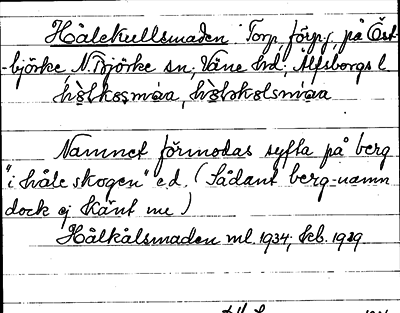 Hålekullsmaden Torp, förp., på Öst-
-björke, N. Björke sn; Väne hd; Älfsborgs l
Namnet förmodas syfta på berg
"i håle skogen" e.d. (Sådant berg-namn
dock ej känt nu)
Hålkålsmaden ml. 1934; kb. 1929